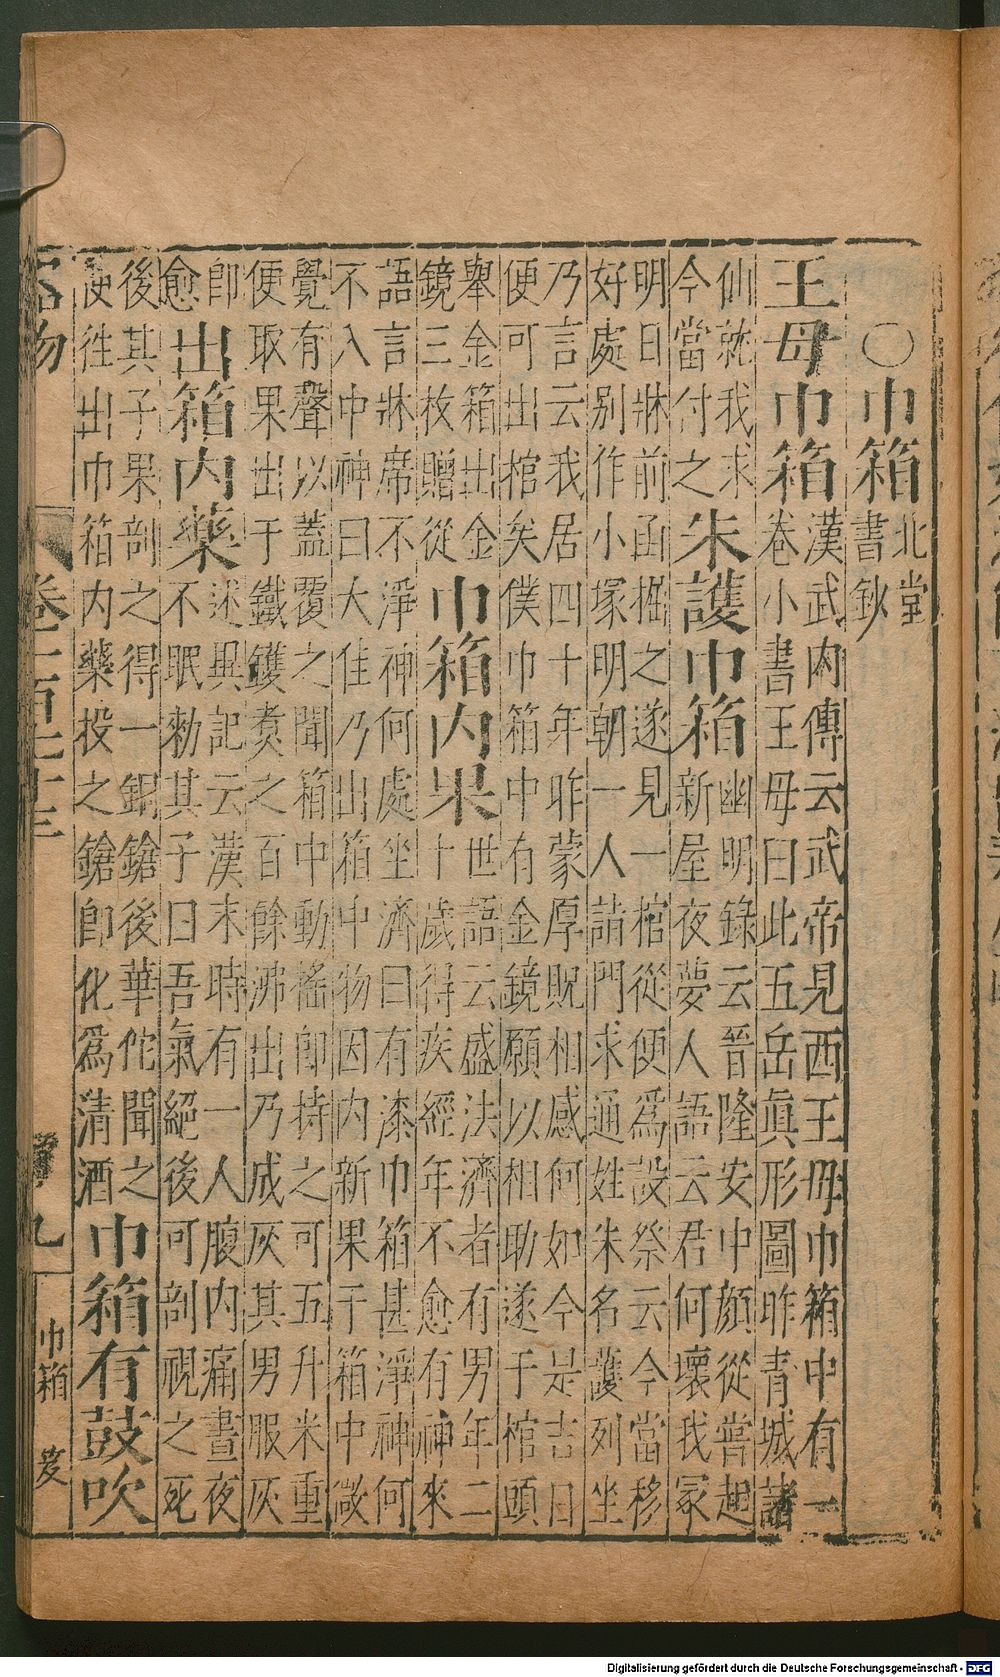 ○巾箱
北堂
書鈔
王母巾箱
漢武内傳云武帝見西王母巾箱中有一
卷小書王母曰此五岳眞形圖昨青城諸
仙就我求
今當付之
朱護巾箱
幽明錄云晉隆安中顔從嘗起
新屋夜夢人語云君何壞我冢
明日牀前函掘之遂見一棺從便爲設祭云今當移
好處别作小塚明朝一人請門求通姓朱名護列坐
乃言云我居四十年昨蒙厚貺相感何如今是吉日
便可出棺矣僕巾箱中有金鏡願以相助遂于棺頭
舉金箱出金
鏡三枚贈從
巾箱内果
世語云盛法濟者有男年二
十歲得疾經年不愈有神來
語言牀席不淨神何處坐濟曰有漆巾箱甚淨神何
不入中神曰大佳乃出箱中物因内新果于箱中㣲
覺有聲以蓋覆之聞箱中動搖卽持之可五升米重
便取果出于鐵鑊煑之百餘沸出乃成灰其男服灰
卽
愈
出箱内藥
述異記云漢末時有一人腹内痛晝夜
不眠勑其子曰吾氣絕後可剖視之死
後其子果剖之得一銅鎗後華佗聞之
便徃出巾箱内藥投之鎗卽化爲清酒
巾箱有鼓吹
九
巾箱
笈